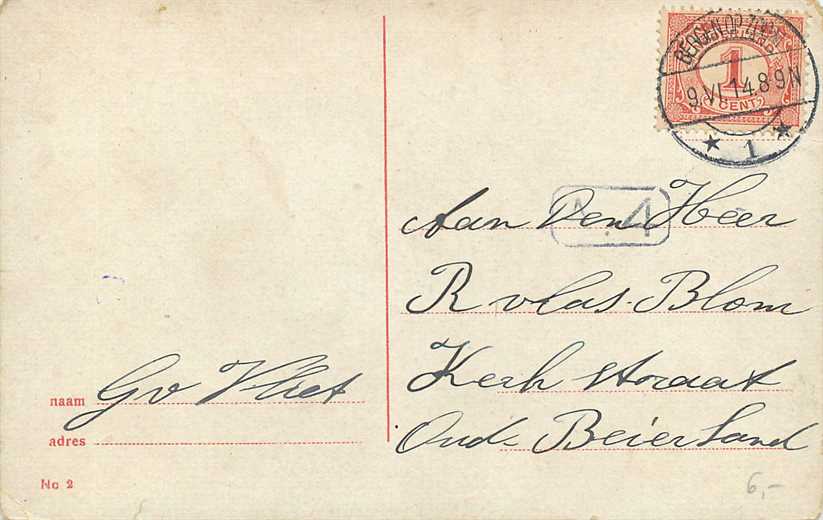 BERGEN OP ZOOM
9.VI.14.8-9N
1
1
CENT
N. 4
Aan Den Heer
R vlas. Blom
Kerk straat
Oud-Beierland
naam Gv Vliet
adres
No 2
6,-